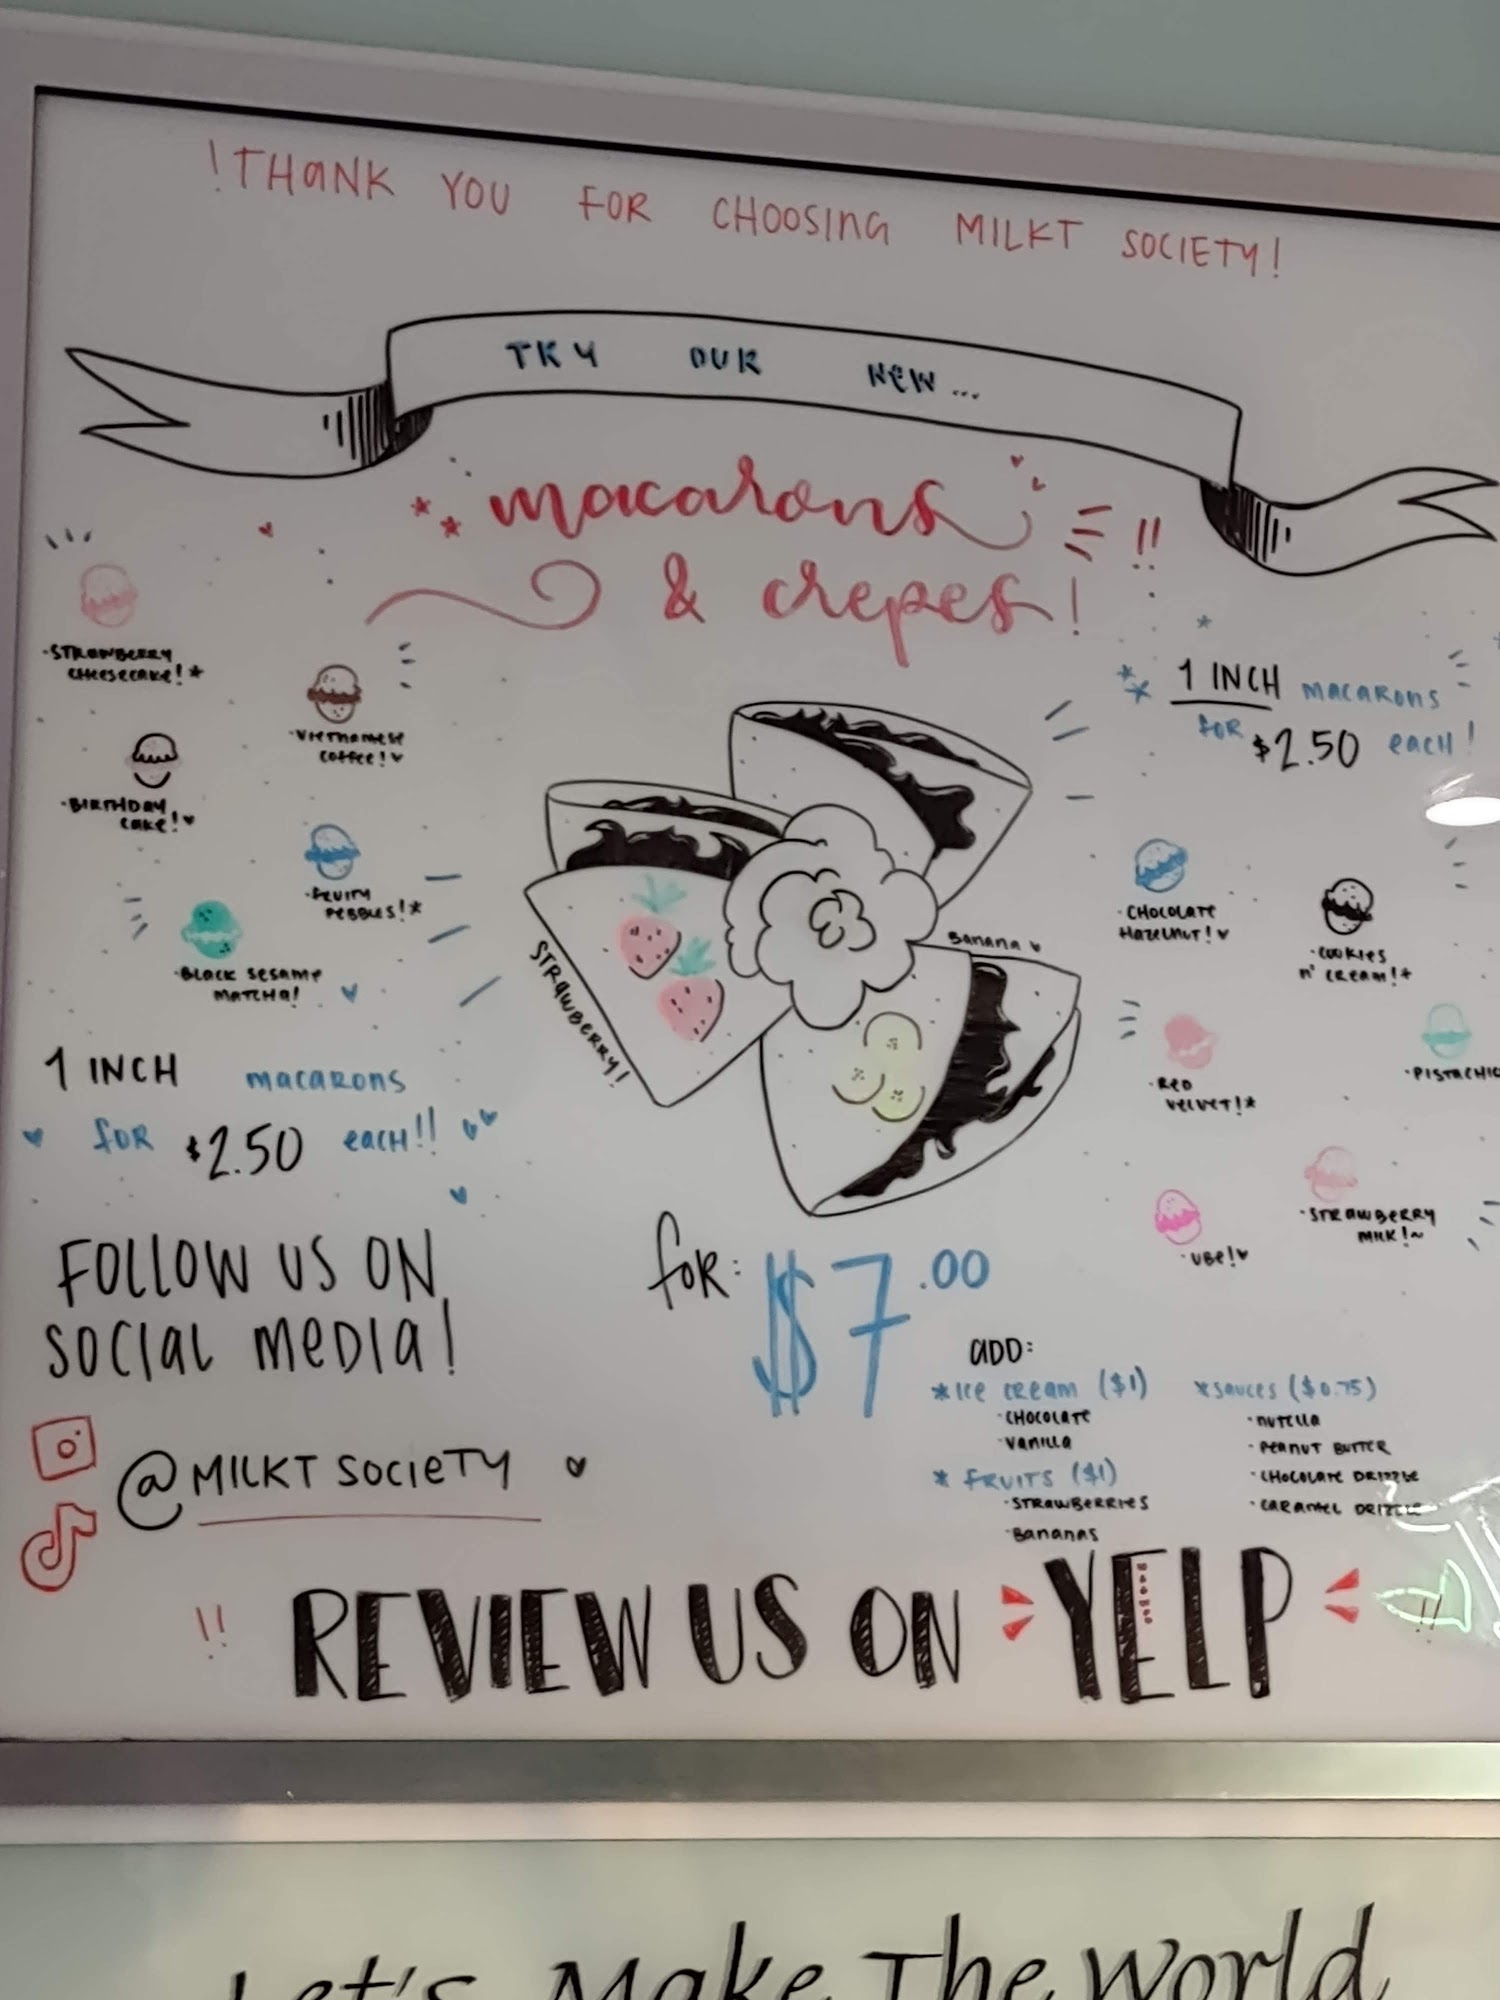 !THANK YOU FOR CHOOSING MILKT SOCIETY!
TRY OUR NEW...
macarons
& crepes!
!!
·STRAWBERRY
CHEESECAKE!*
·VIETNAMESE
COFFEE!
·BIRTHDAY
CAKE!
·FRUITY
PEBBLES!*
·BLACK SESAME
MATCHA!
1 INCH macarons
for $2.50 each!!
STRAWBERRY!
Banana
1 INCH macarons
for $2.50 each!
·CHOCOLATE
HAZELNUT!
·COOKIES
n' CREAM!+
·RED
VELVET!*
·PISTACHIO
·STRAWBERRY
MILK!~
·UBE!
FOLLOW US ON
SOCIAL MEDIA!
@MILKT SOCIETY
for: $7.00
ADD:
*ICE CREAM ($1)
·CHOCOLATE
·VANILLA
* FRUITS ($1)
·STRAWBERRIES
·BANANAS
*SAUCES ($0.75)
·NUTELLA
·PEANUT BUTTER
·CHOCOLATE DRIZZLE
·CARAMEL DRIZZLE
!! REVIEW US ON YELP !!
Let's Make The World